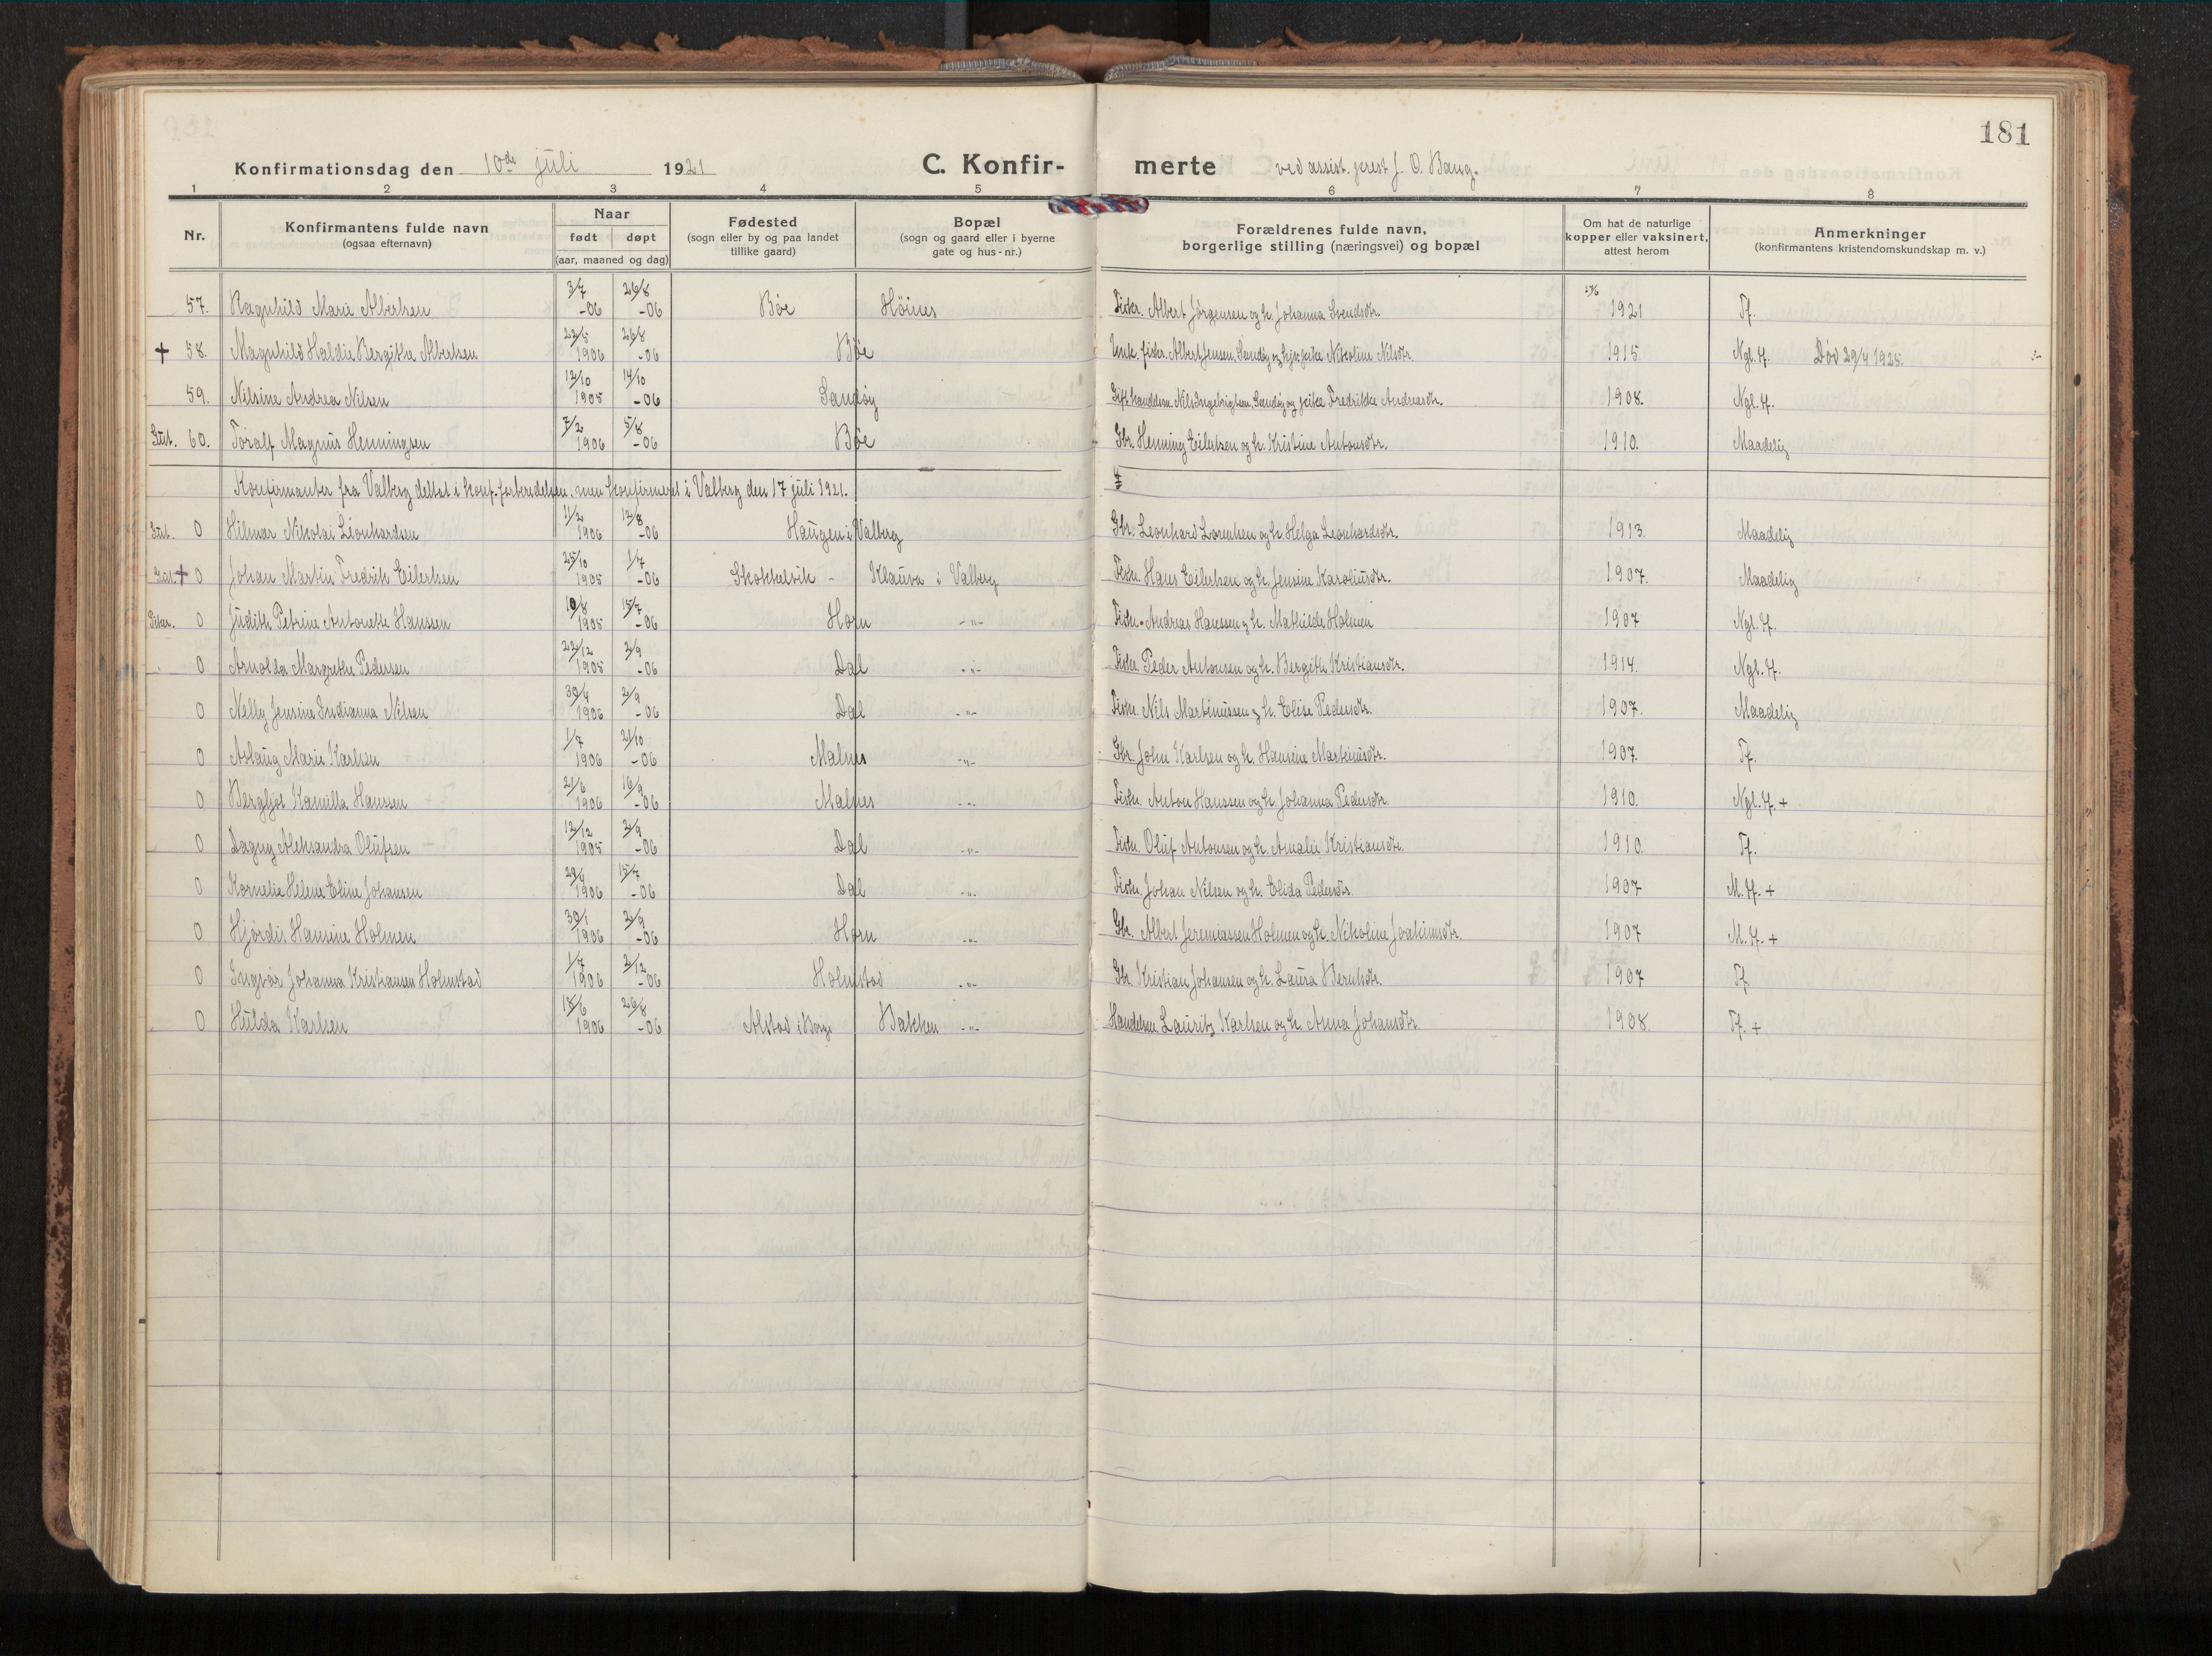 181
Konfirmationsdag den 10de juli 1921 C. Konfir- merte ved assist. prest J. O. Bang.
1 2 3 4 5 6 7 8
Nr. Konfirmantens fulde navn (ogsaa efternavn) Naar født døpt (aar, maaned og dag) Fødested (sogn eller by og paa landet tillike gaard) Bopæl (sogn og gaard eller i byerne gate og hus-nr.) Forældrenes fulde navn, borgerlige stilling (næringsvei) og bopæl Om hat de naturlige kopper eller vaksinert, attest herom Anmerkninger (konfirmantens kristendomskundskap m. v.)
57. Ragnhild Marie Albertsen 3/7 -06 26/8 -06 Bøe Höines Fisker. Albert Jörgensen og h. Johanna Svendsdtr. 1921 Tf.
+ 58. Magnhild Haldis Bergithe Albertsen 22/5 1906 26/8 -06 Bøe Unk. fisker. Albert Jensen, Sandøy og pike Nikoline Nilsdtr. 1915. Ngl. H. Död 29/4 1925.
59. Nilsine Andrea Nilsen 12/10 1905 14/10 -06 Sandøy Gift handelsm. Nils Ingebrigtsen, Sandøy og pike Fredrikke Andreasdtr. 1908. Ngl. H.
60. Toralf Magnus Henningsen 7/2 1906 5/8 -06 Bøe Gbr. Henning Eilertsen og h. Kristine Antonsdtr. 1910. Maadelig
Konfirmanter fra Valberg deltat i konf. forberedelsen, men konfirmeret i Valberg den 17 juli 1921.
0 Hilmar Nikolai Leonhardsen 11/2 1906 12/8 -06 Haugen i Valberg Gbr. Leonhard Lorentsen og h. Helga Leonhardsdtr. 1913. Maadelig
+ 0 Johan Martin Fredrik Eilertsen 25/10 1905 1/7 -06 Skokkelvik - Klauva i Valberg Fisker. Hans Eilertsen og h. Jensine Karoliusdtr. 1907. Maadelig
0 Judith Petrine Antonette Hanssen 10/8 1905 15/7 -06 Horn -"- Fisker. Andreas Hanssen og h. Mathilde Holmen 1907 Ngl. H.
0 Arnolda Margrethe Pedersen 22/12 1905 2/9 -06 Dal -"- Fisker Peder Antonsen og h. Bergithe Kristiansdtr. 1914. Ngl. H.
0 Nelly Jensine Indianna Nilsen 30/4 1906 2/9 -06 Dal -"- Fisker. Nils Martinussen og h. Elise Pedersdtr. 1907. Maadelig
0 Aslaug Marie Karlsen 1/7 1906 21/10 -06 Malnes -"- Gbr. John Karlsen og h. Hansine Martinusdtr. 1907. Tf.
0 Bergljot Kamilla Hanssen 21/6 1906 16/9 -06 Malnes -"- Fisker. Anton Hanssen og h. Johanna Pedersdtr. 1910. Ngl. H. +
0 Dagny Aleksandra Olufsen 12/12 1905 2/9 -06 Dal -"- Fisker Oluf Antonsen og h. Amalie Kristiansdtr. 1910. Tf.
0 Kornelie Helene Eline Johansen 29/4 1906 15/7 -06 Dal -"- Fisker. Johan Nilsen og h. Elida Pedersdtr. 1907 M. H. +
0 Hjørdis Hansine Holmen 30/1 1906 2/9 -06 Horn -"- Gbr. Albert Jeremiassen Holmen og h. Nikoline Joakimsdtr. 1907 M. H. +
0 Ingvor Johanna Kristiansen Holmstad 1/7 1906 2/12 -06 Holmstad -"- Gbr. Kristian Johansen og h. Laura Berntsdtr. 1907 Tf.
0 Hulda Karlsen 18/6 1906 26/8 -06 Alstad i Borge Bakken -"- Handelsm. Lauritz Karlsen og h. Anna Johansdtr 1908. Tf. +